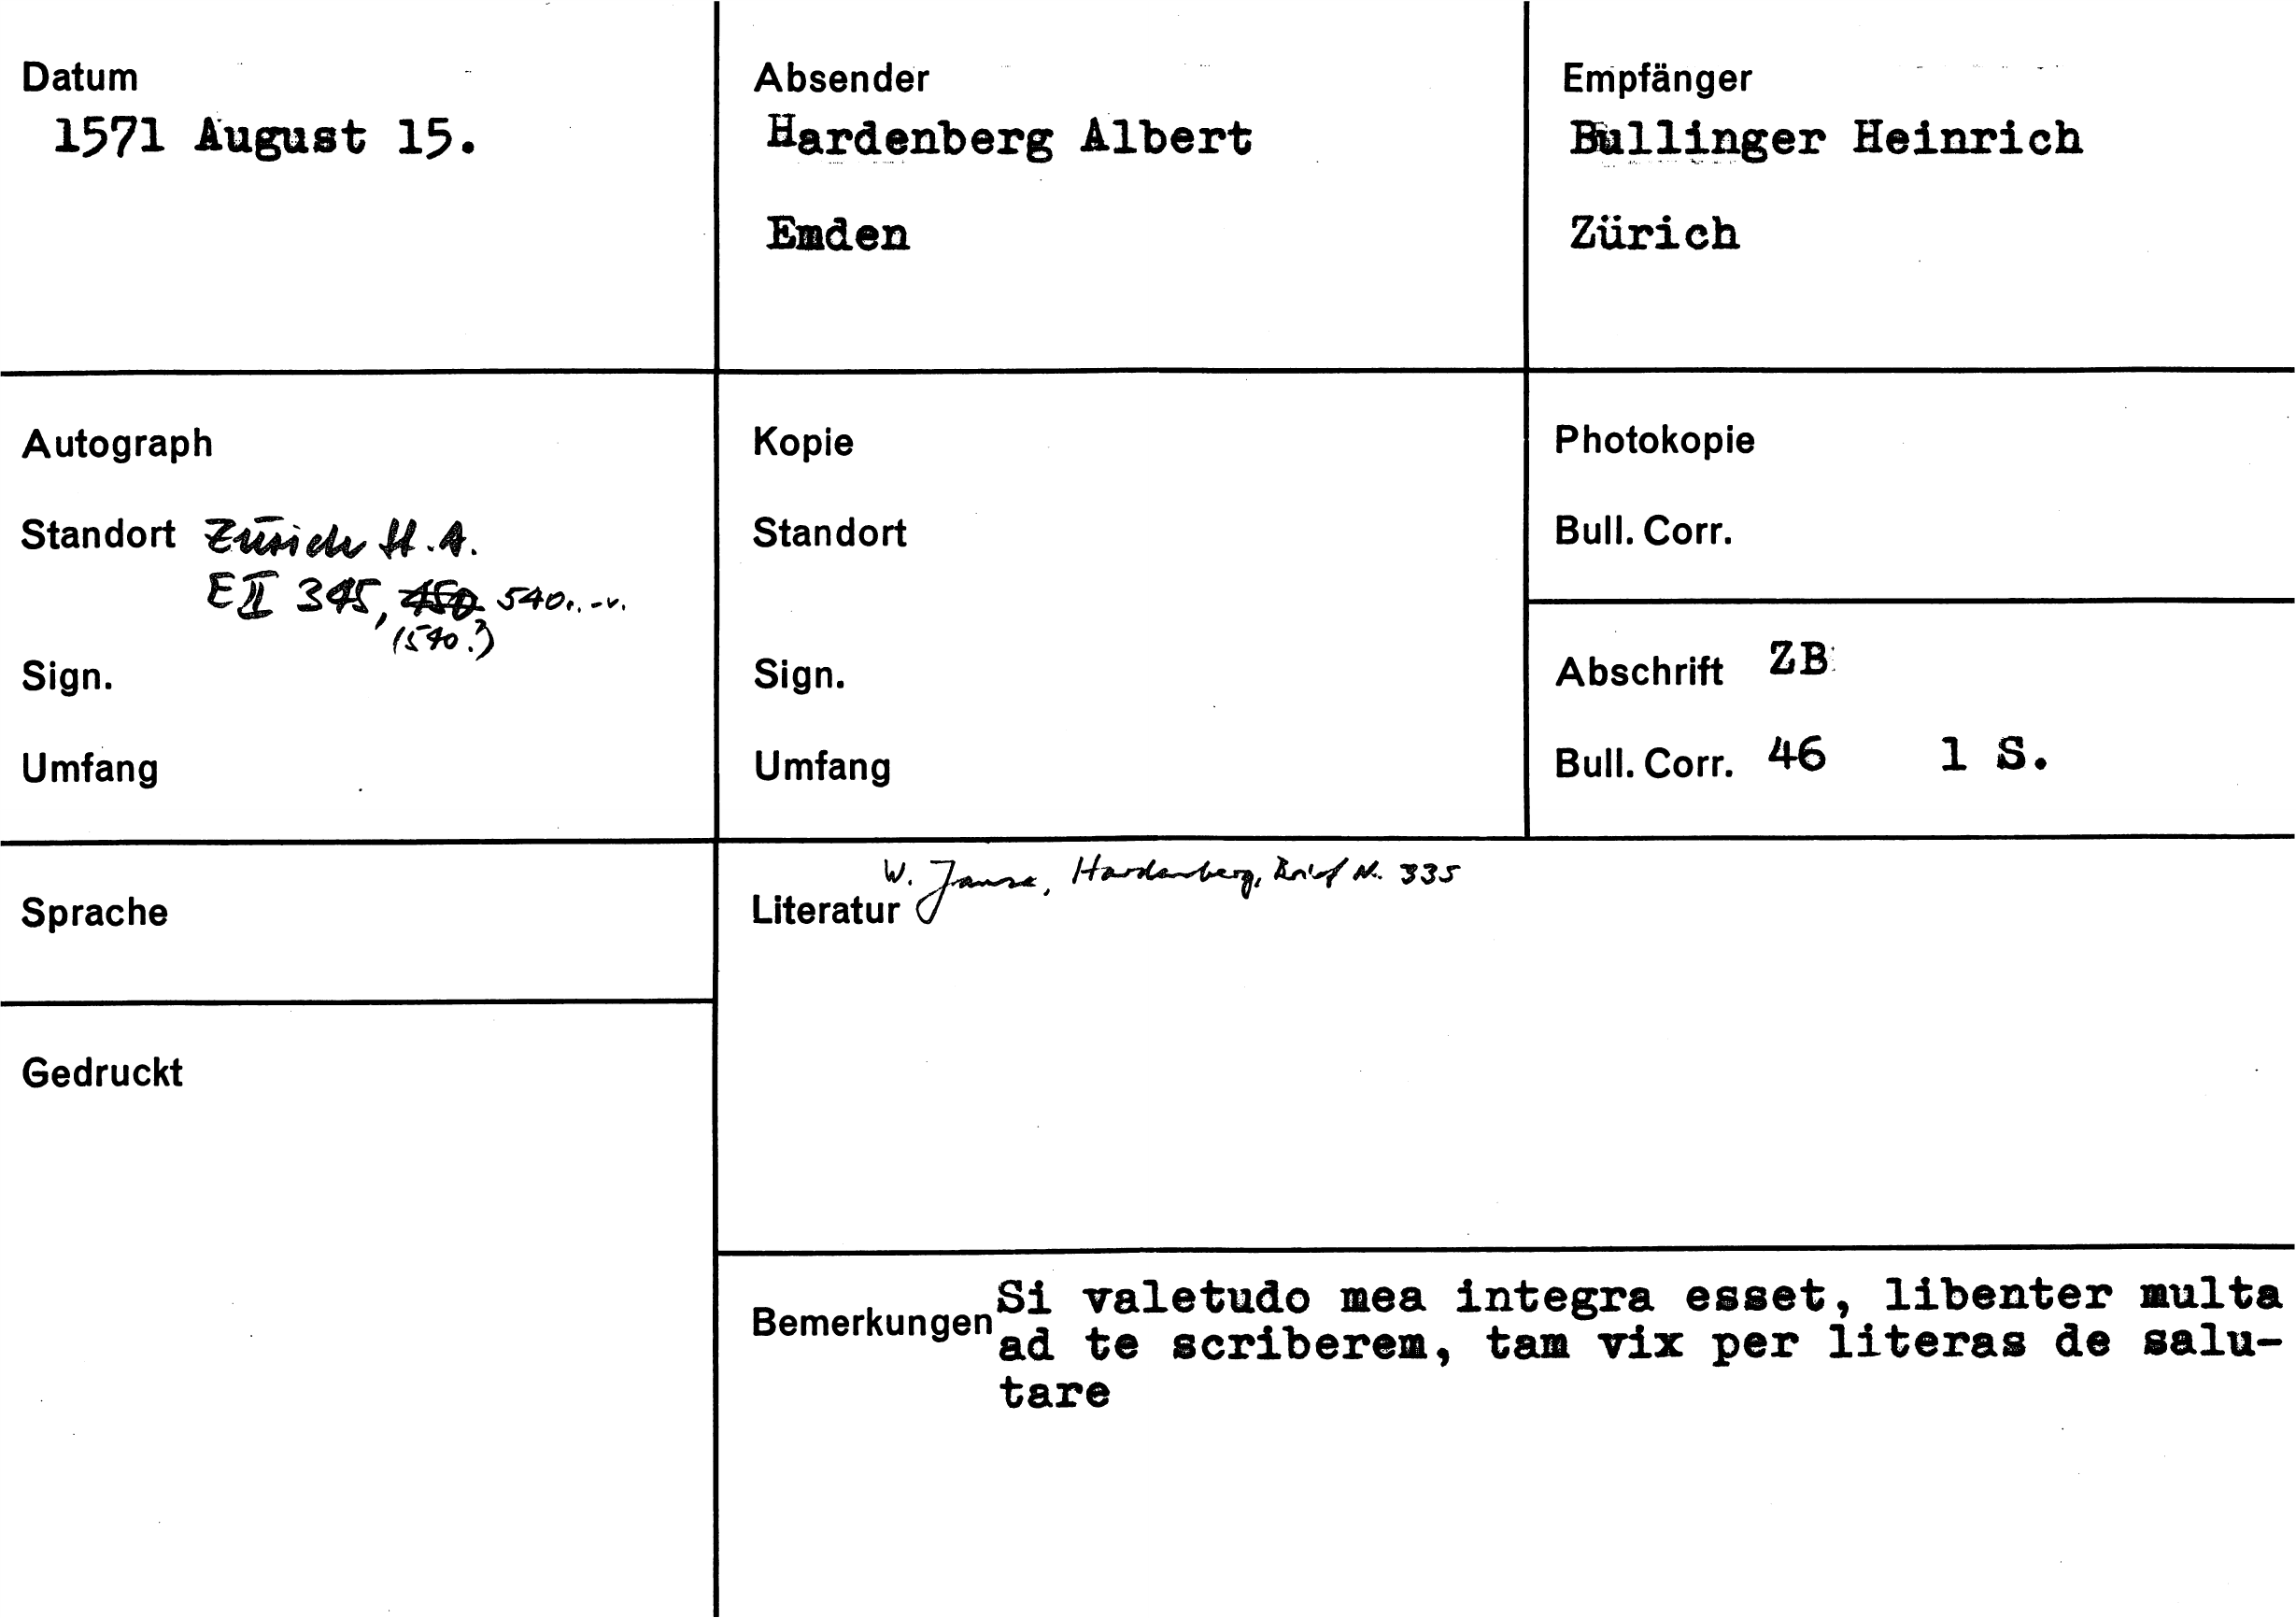 Datum
1571 August 15.
Absender
Hardenberg Albert
Emden
Empfänger
Bullinger Heinrich
Zürich
Autograph
Standort Zürich St.A.
E II 345, 540r.-v.
(540?)
Sign.
Umfang
Kopie
Standort
Sign.
Umfang
Photokopie
Bull. Corr.
Abschrift ZB
Bull. Corr. 46 1 S.
Sprache
Gedruckt
W. Janse, Hardenberg, Brief Nr. 335
Literatur
Bemerkungen Si valetudo mea integra esset, libenter multa
ad te scriberem, tam vix per literas de salu-
tare